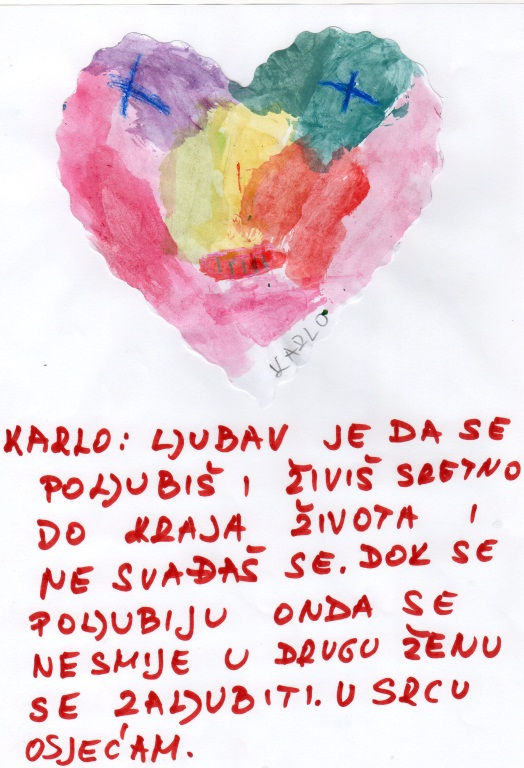 KARLO
KARLO: LJUBAV JE DA SE
POLJUBIŠ I ŽIVIŠ SRETNO
DO KRAJA ŽIVOTA I
NE SVAĐAŠ SE. DOK SE
POLJUBIJU ONDA SE
NE SMIJE U DRUGU ŽENU
SE ZALJUBITI. U SRCU
OSJEĆAM.